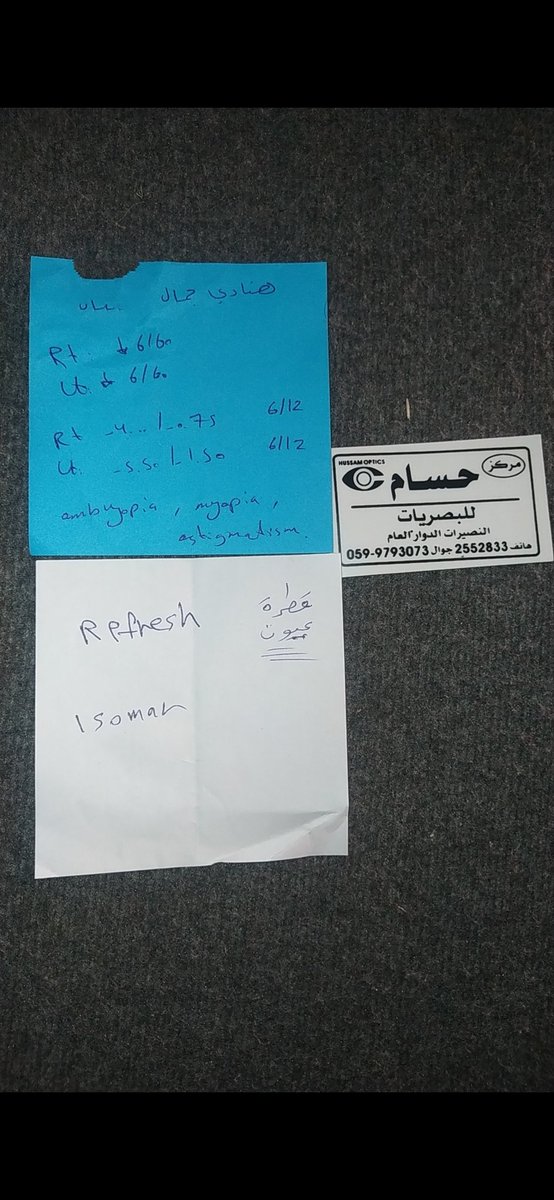 هنادي جمال
Rt. 6/60
Lt. 6/60
Rt -4... /-0.75 6/12
Lt. -5.50 /-1.50 6/12
embyopia, myopia,
astigmatism.
HUSSAM OPTICS
مركز
حسام
للبصريات
النصيرات الدوار العام
هاتف 2552833 جوال 059-9793073
Refresh قطرة
عيون
Isomar